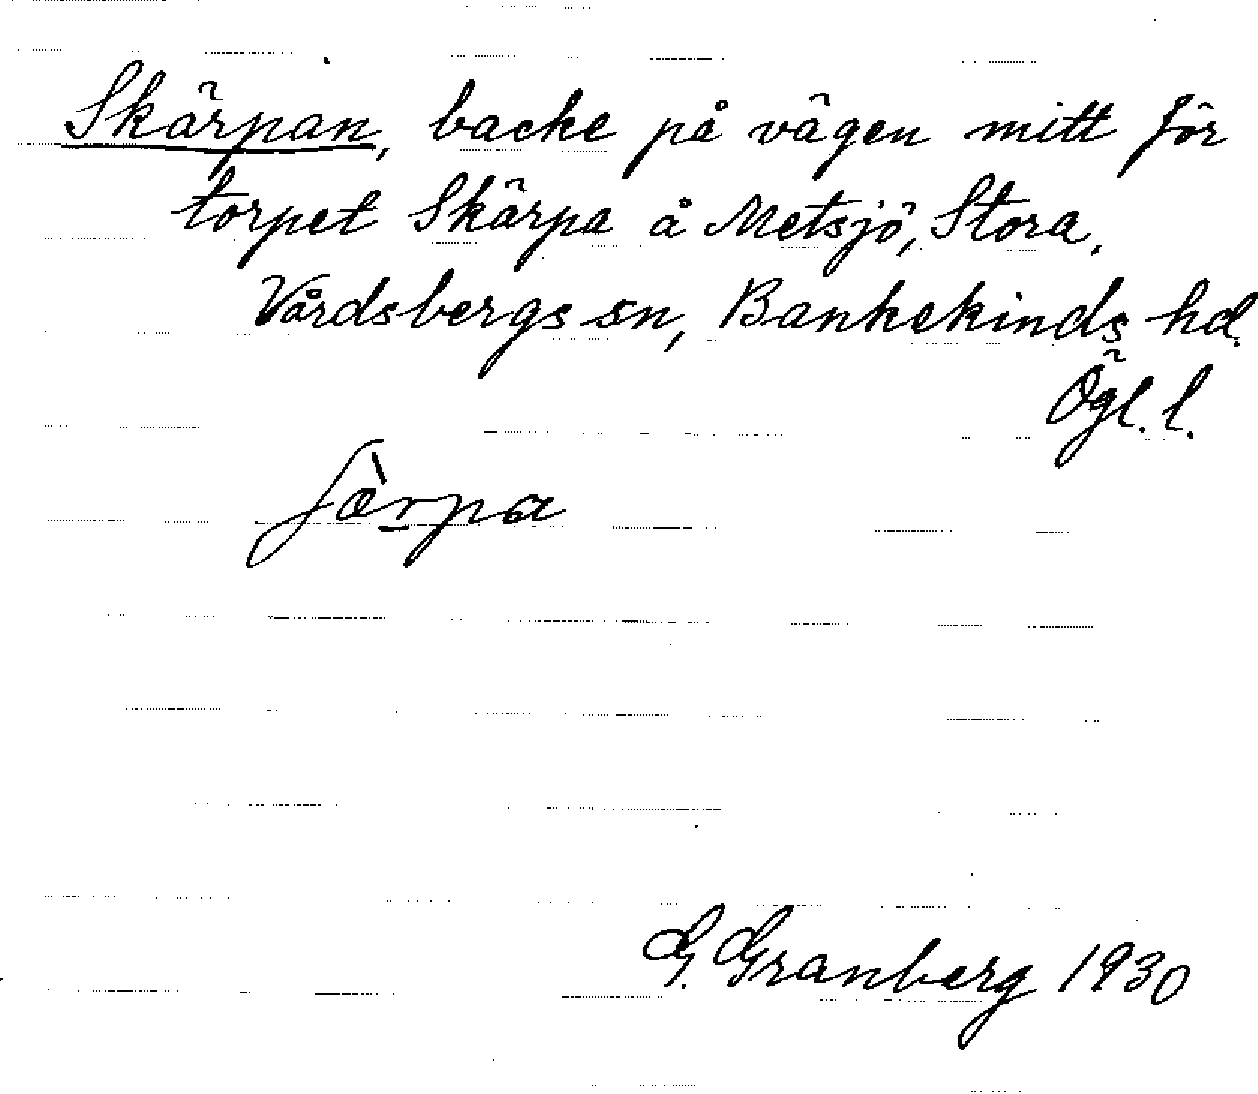 Skärpan, backe på vägen mitt för
torpet Skärpa å Metsjö, Stora,
Vårdsbergs sn, Bankekinds hd.
Ögl. l.
G. Granberg 1930